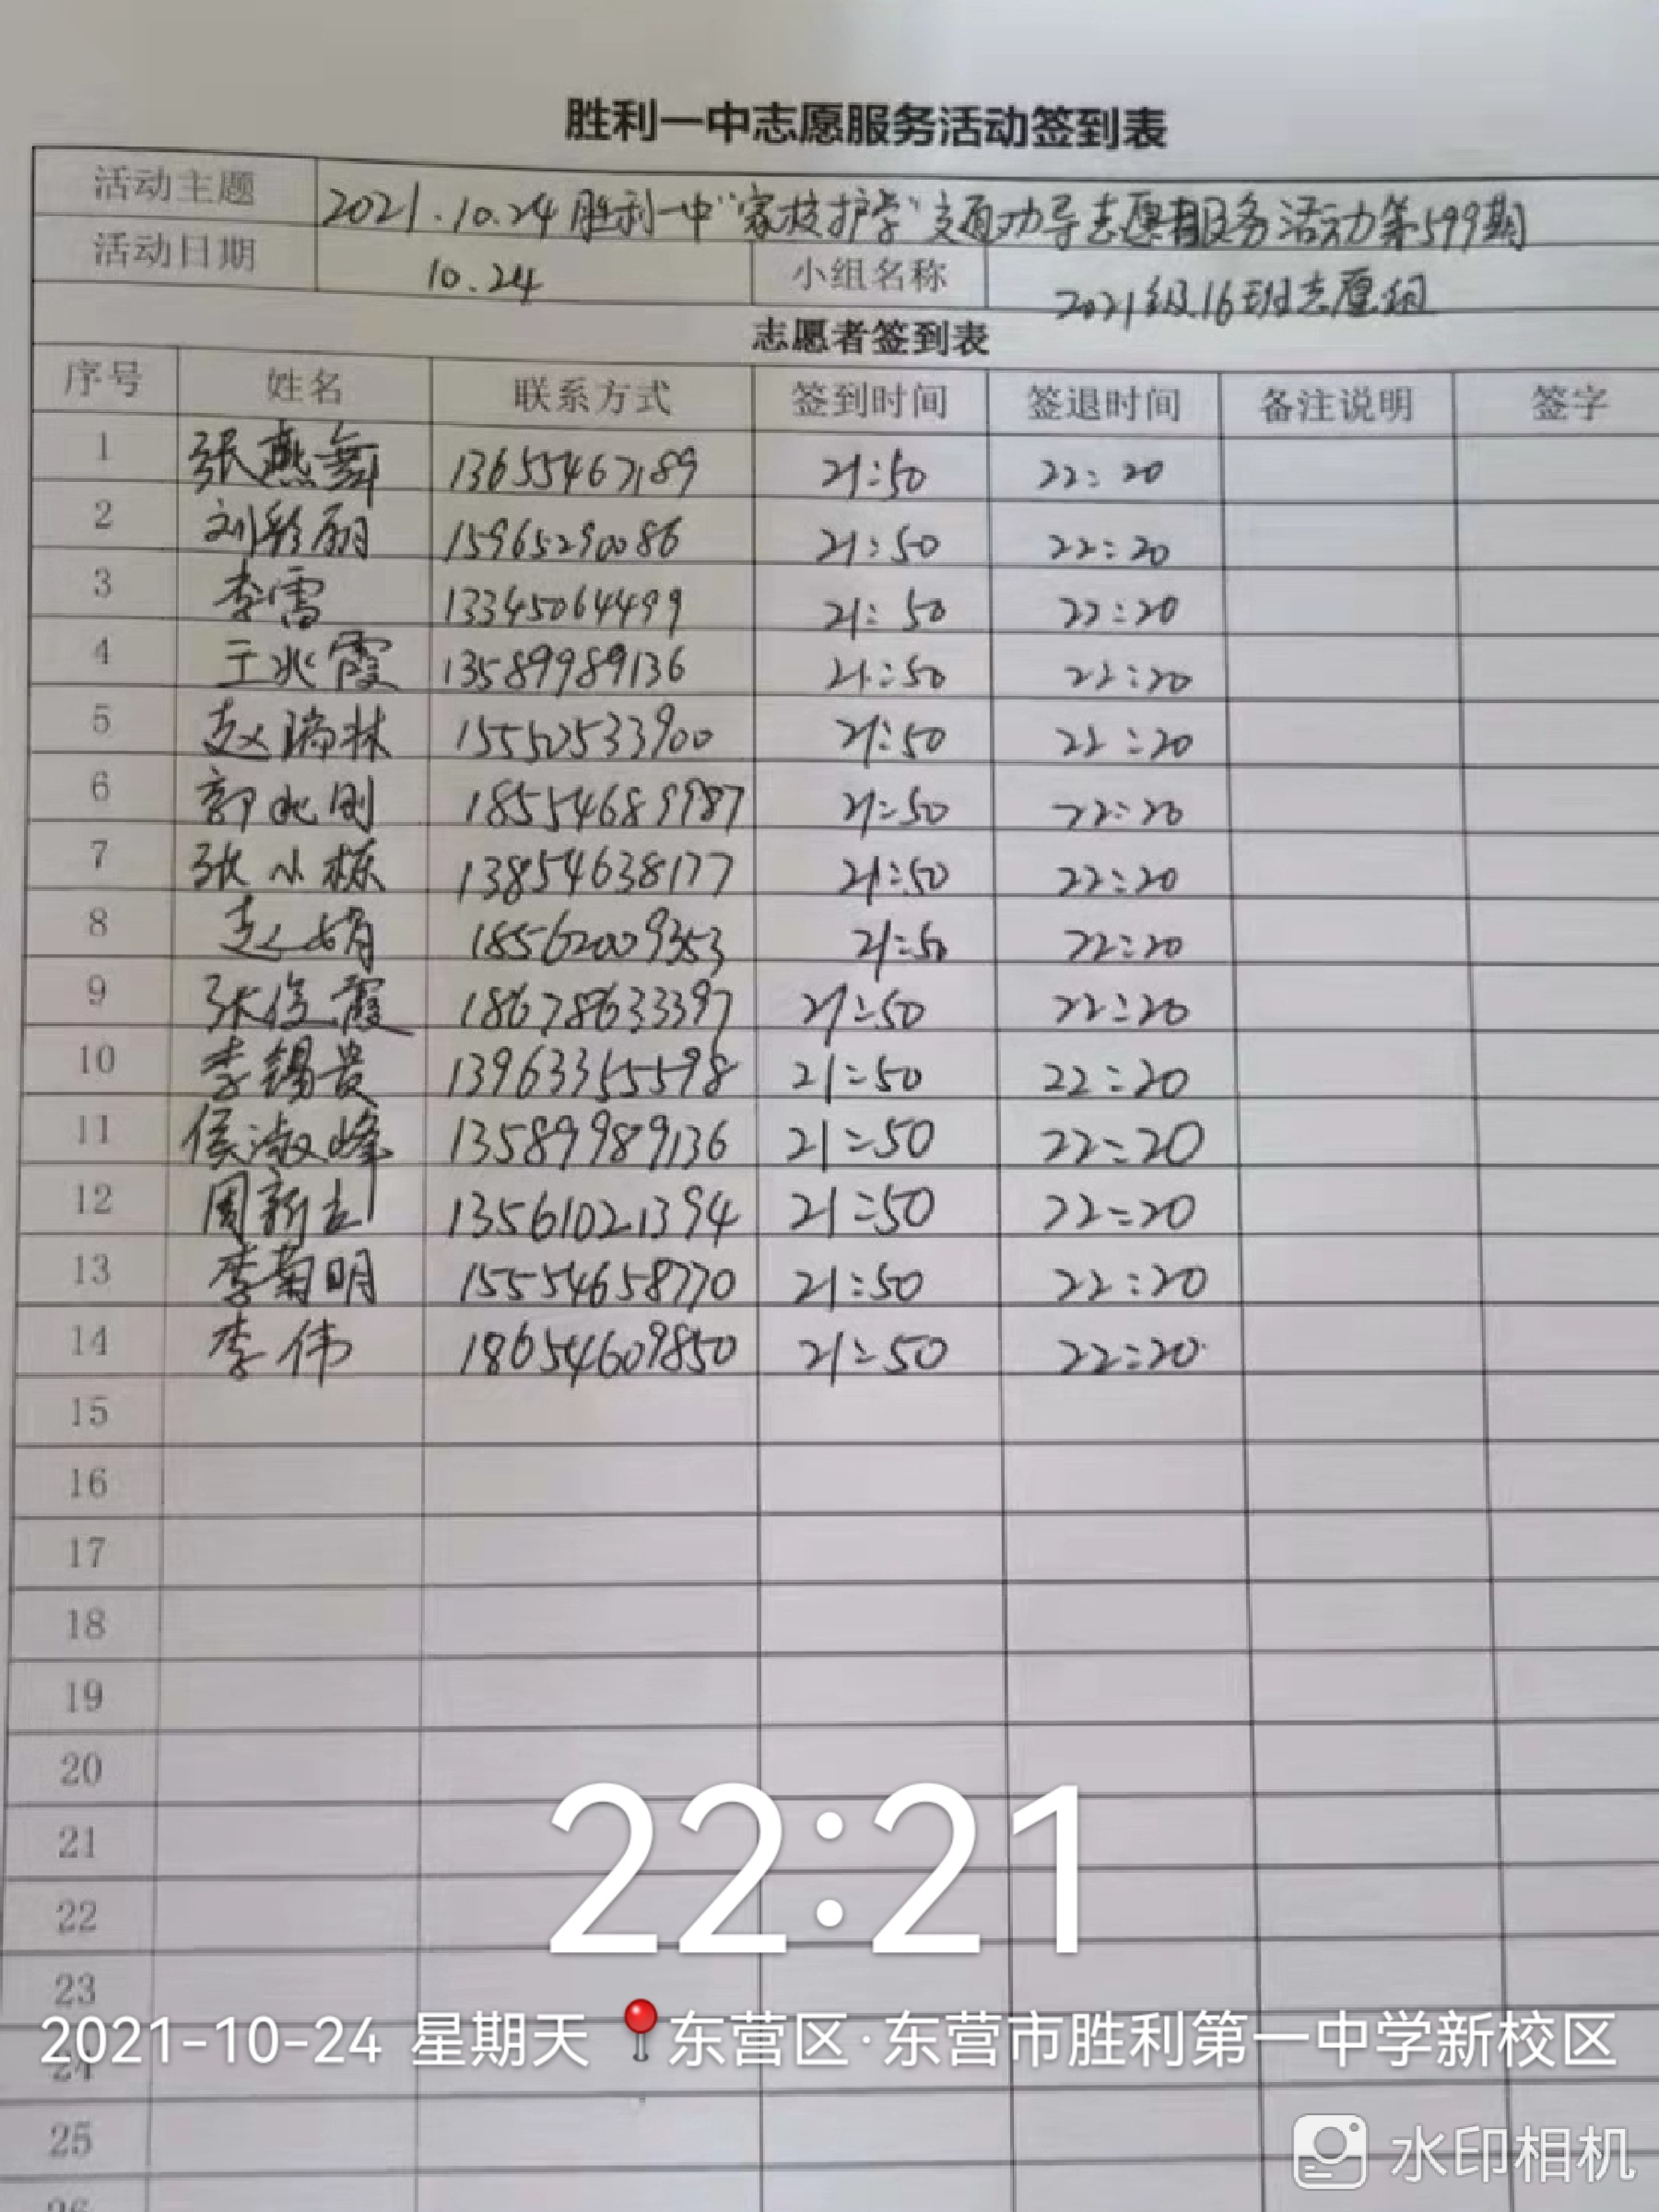 胜利一中志愿服务活动签到表
活动主题 2021.10.24胜利一中"家校护学"交通劝导志愿者服务活动第599期
活动日期 10.24 小组名称 2021级16班志愿组
志愿者签到表
序号 姓名 联系方式 签到时间 签退时间 备注说明 签字
1 张燕舞 13655467189 21:50 22:20
2 刘彩丽 15965290086 21:50 22:20
3 李雷 13345064499 21:50 22:20
4 王兆霞 13589989136 21:50 22:20
5 赵瑞林 155502533900 21:50 22:20
6 郭 刚 18554689987 21:50 22:20
7 张小栋 13854638177 21:50 22:20
8 赵娟 18562009353 21:50 22:20
9 张俊霞 18678633397 21:50 22:20
10 李锡贵 13963355598 21:50 22:20
11 侯淑峰 13589989136 21:50 22:20
12 周新立 13561021394 21:50 22:20
13 李菊明 15554658770 21:50 22:20
14 李伟 18654609850 21:50 22:20
15
16
17
18
19
20
21
22
23
24
25
26
22:21
2021-10-24 星期天 东营区·东营市胜利第一中学新校区
水印相机